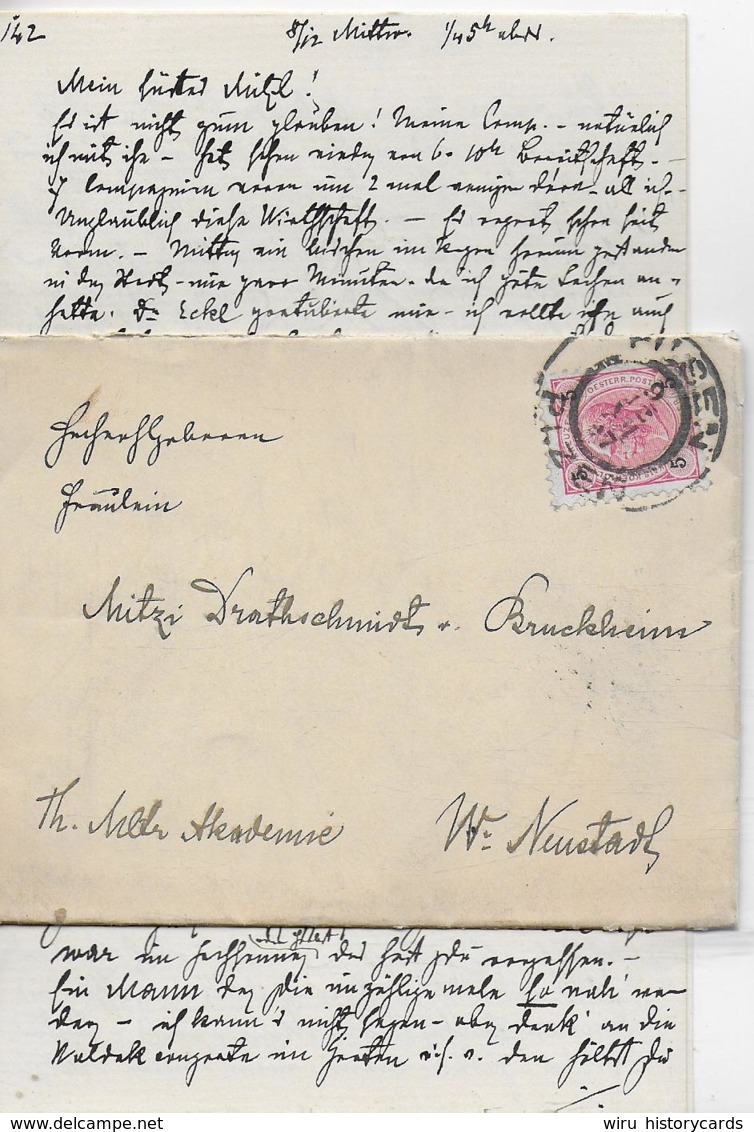 142 8/12 Mittw. 1/45h abds.
Mein süßes Mitzl!
Es ist nicht zum glauben! Meine Comp. – natürlich
ich mit ihr – hat schon wieder von 6-10h Bereitschaft. –
7 Compagnien waren um 2 mal weniger dran – als ich –
Unglaublich diese Wirthschaft. – Es regnet schon seit
Vorm. – Mittag ein bischen im Regen herum gestanden
in der Stadt – nur paar Minuten – da ich gute Sachen an-
hatte. Dr. Eckl gratulierte mir – ich sollte ihn auch
Hochwohlgeboren
Fräulein
Mitzi Drathschmidt v. Bruckheim
Th. Mltr Akademie
Wr. Neustadt
OESTERR. POST
5 5
PILSEN
PLZEŇ
war im das hast Du vergessen. –
Ein Mann der Dir unzählige male so nah' wa-
ich kann's nicht sagen – aber denk' an die
im Garten u.s.w. den hältst Du
wiru historycards